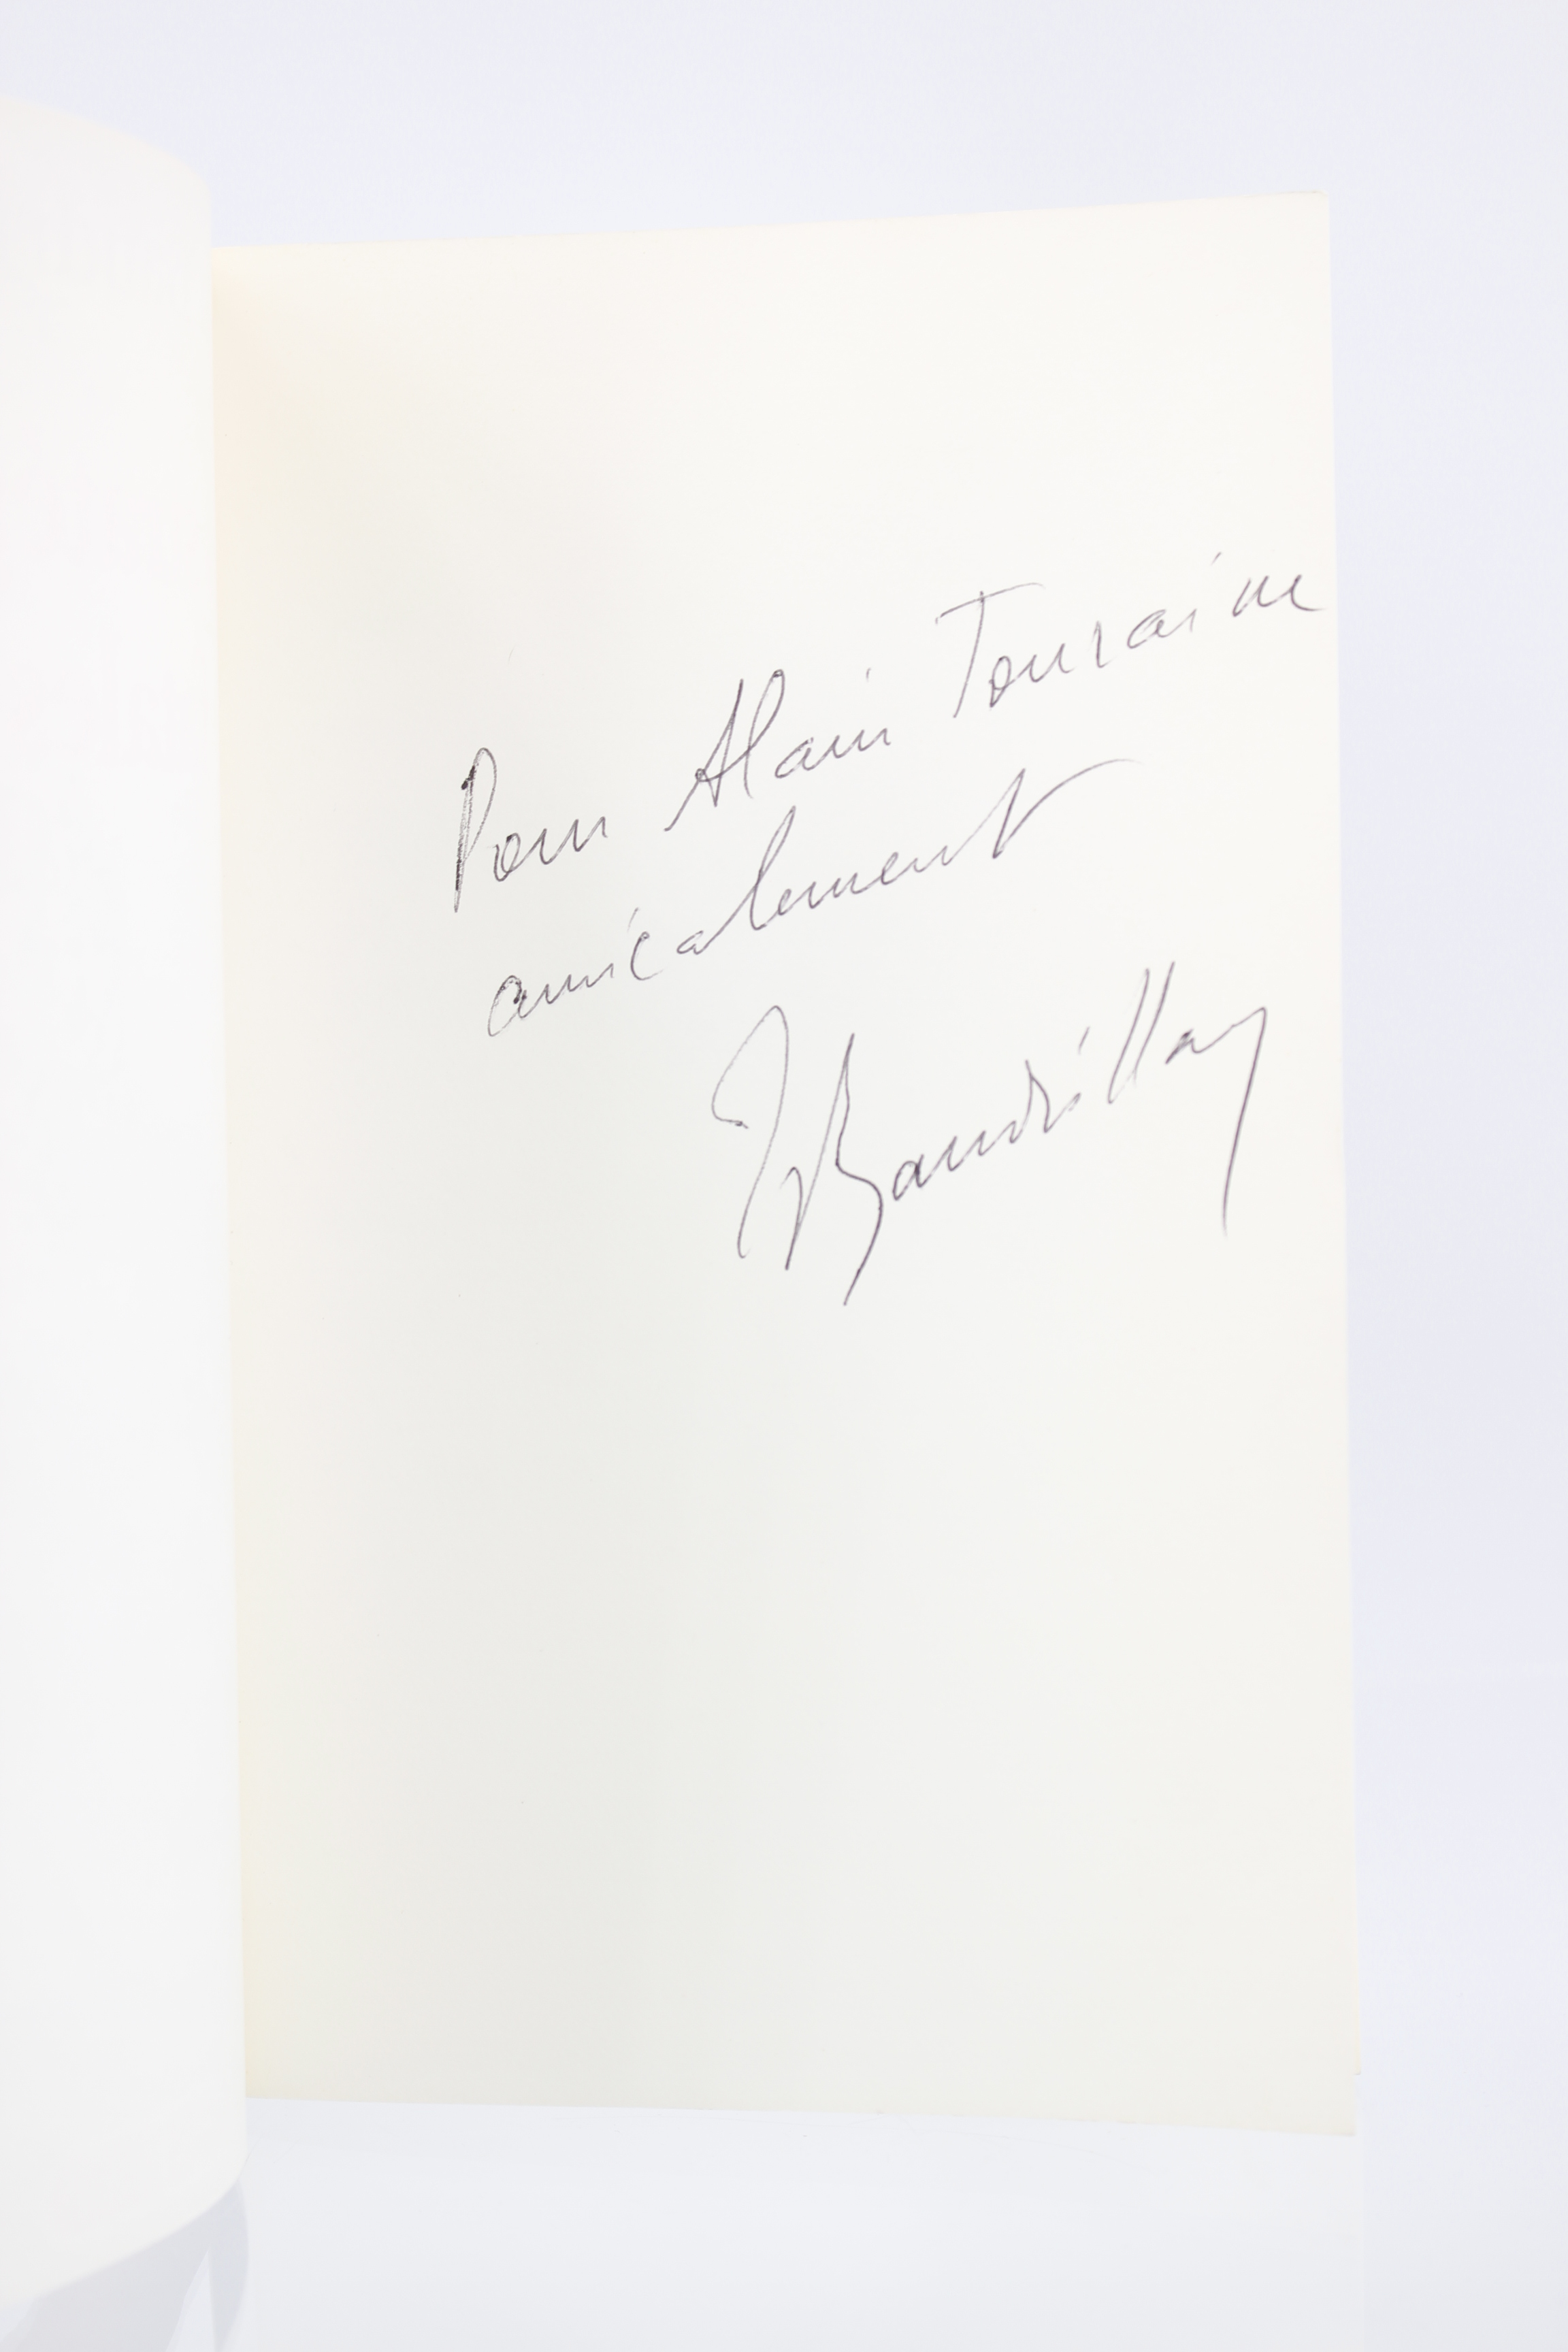 Pour Alain Touraine
amicalement
JBaudrillard